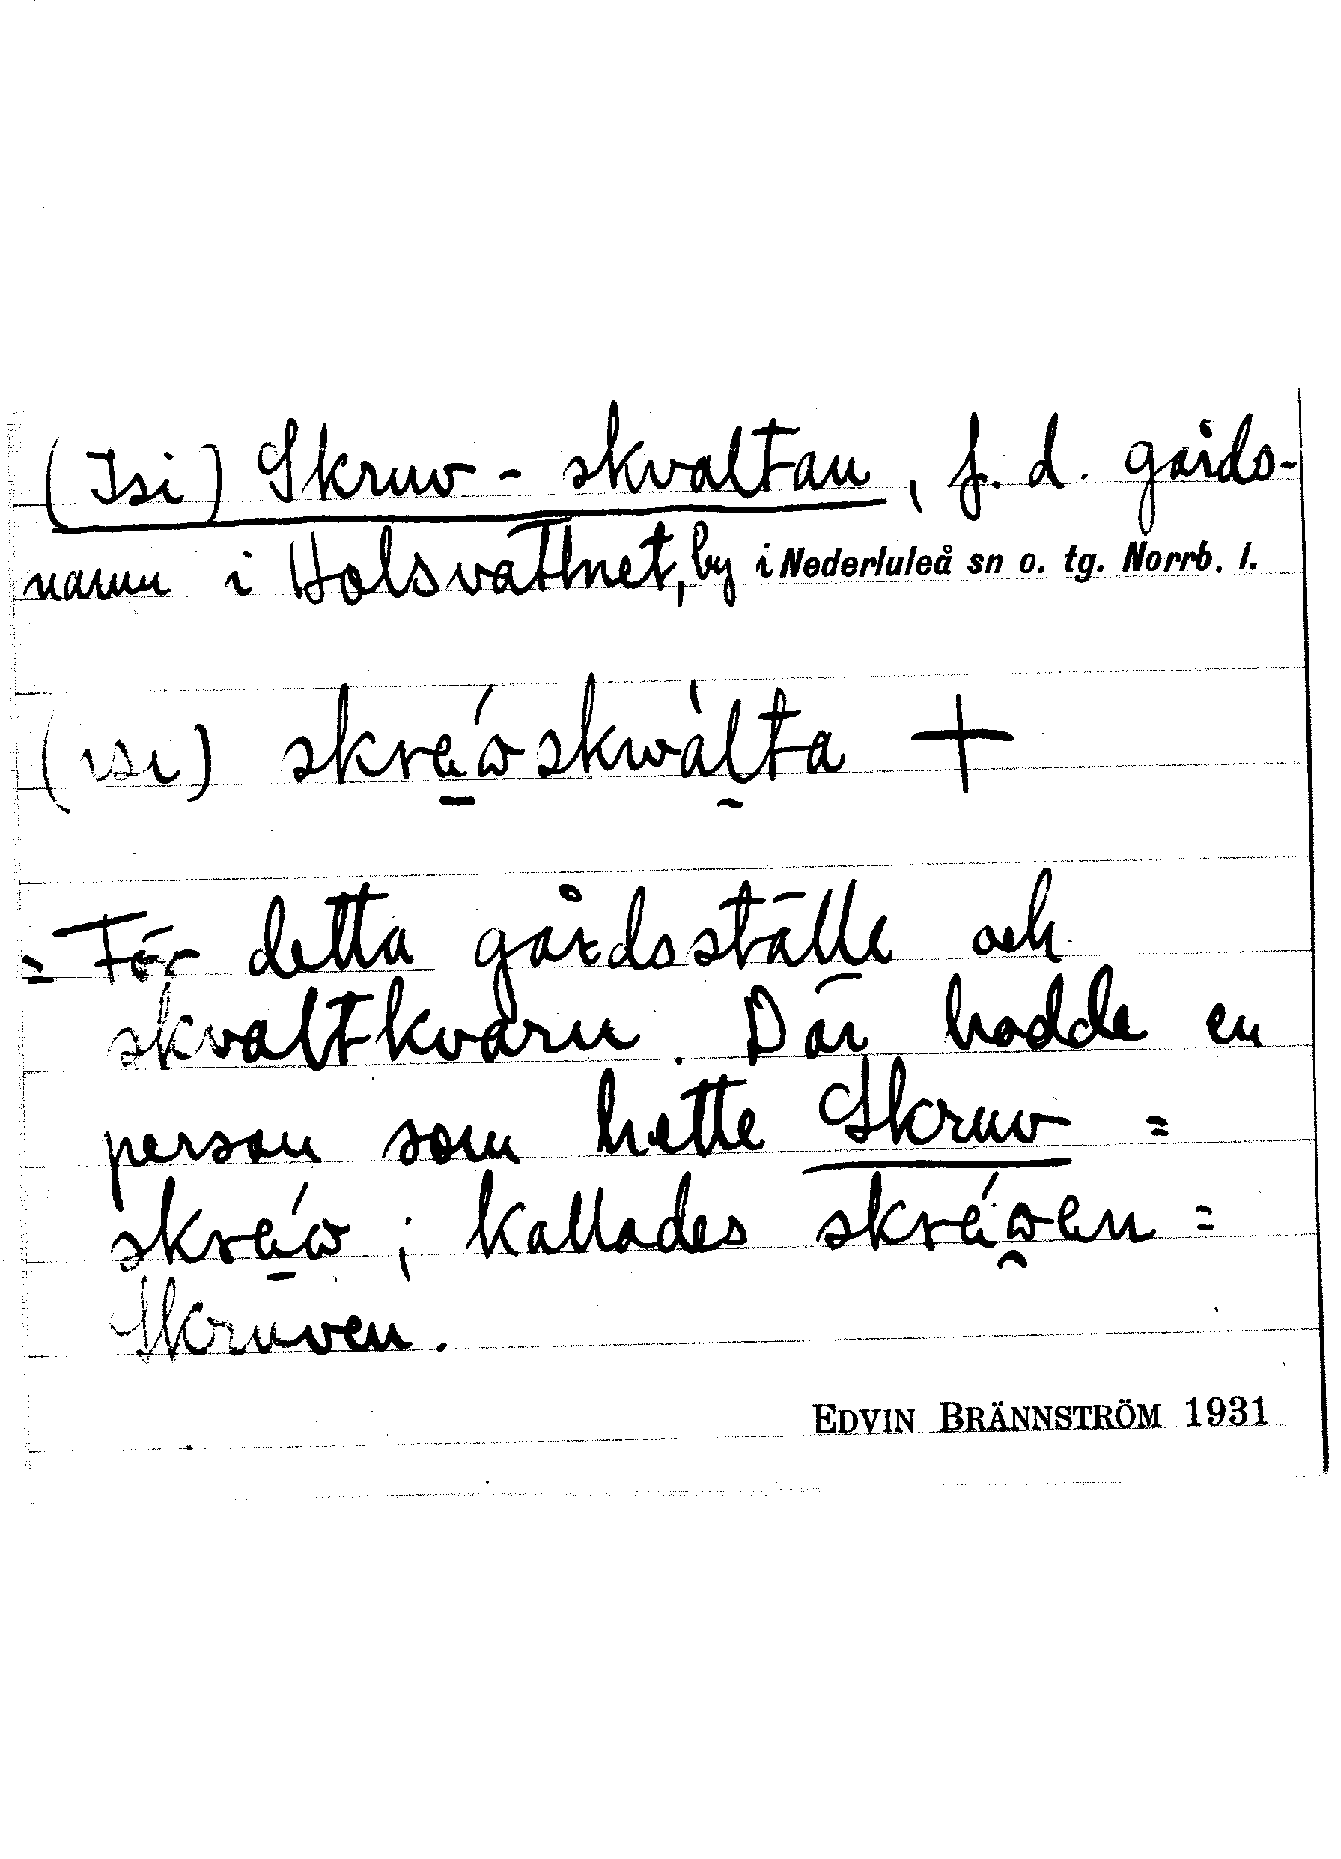 (Isi) Skruv-skvaltan, f. d. gårds-
namn i Holsvattnet, by i Nederluleå sn o. tg. Norrb. l.
(ısı) skre̱ẃskwàlta +
= För detta gårdsställe och
skvaltkvarn. Där hadde en
person som hette Skruv =
skre̱ẃ; kallades skréwen =
Skruven.
EDVIN BRÄNNSTRÖM 1931